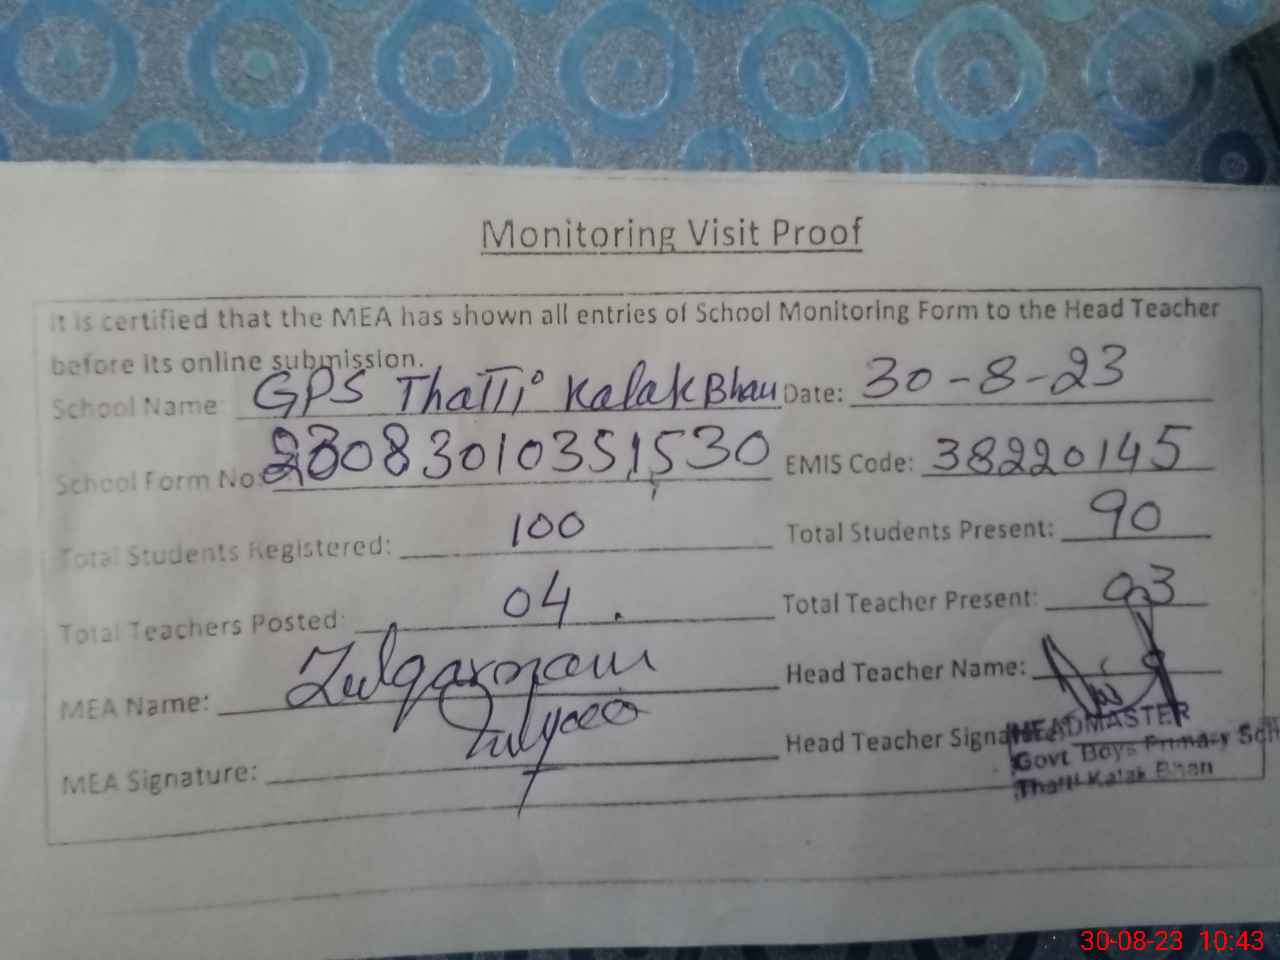 Monitoring Visit Proof
It is certified that the MEA has shown all entries of School Monitoring Form to the Head Teacher
before its online submission.
School Name: GPS Thatti Kalak Bhan Date: 30-8-23
School Form No 23083010351530 EMIS Code: 38220145
Total Students Registered: 100 Total Students Present: 90
Total Teachers Posted: 04 Total Teacher Present: 03
MEA Name: Head Teacher Name:
MEA Signature: Head Teacher Signature
HEADMASTER
Govt Boys Primary Sch
Thatti Kalak Bhan
30-08-23 10:43